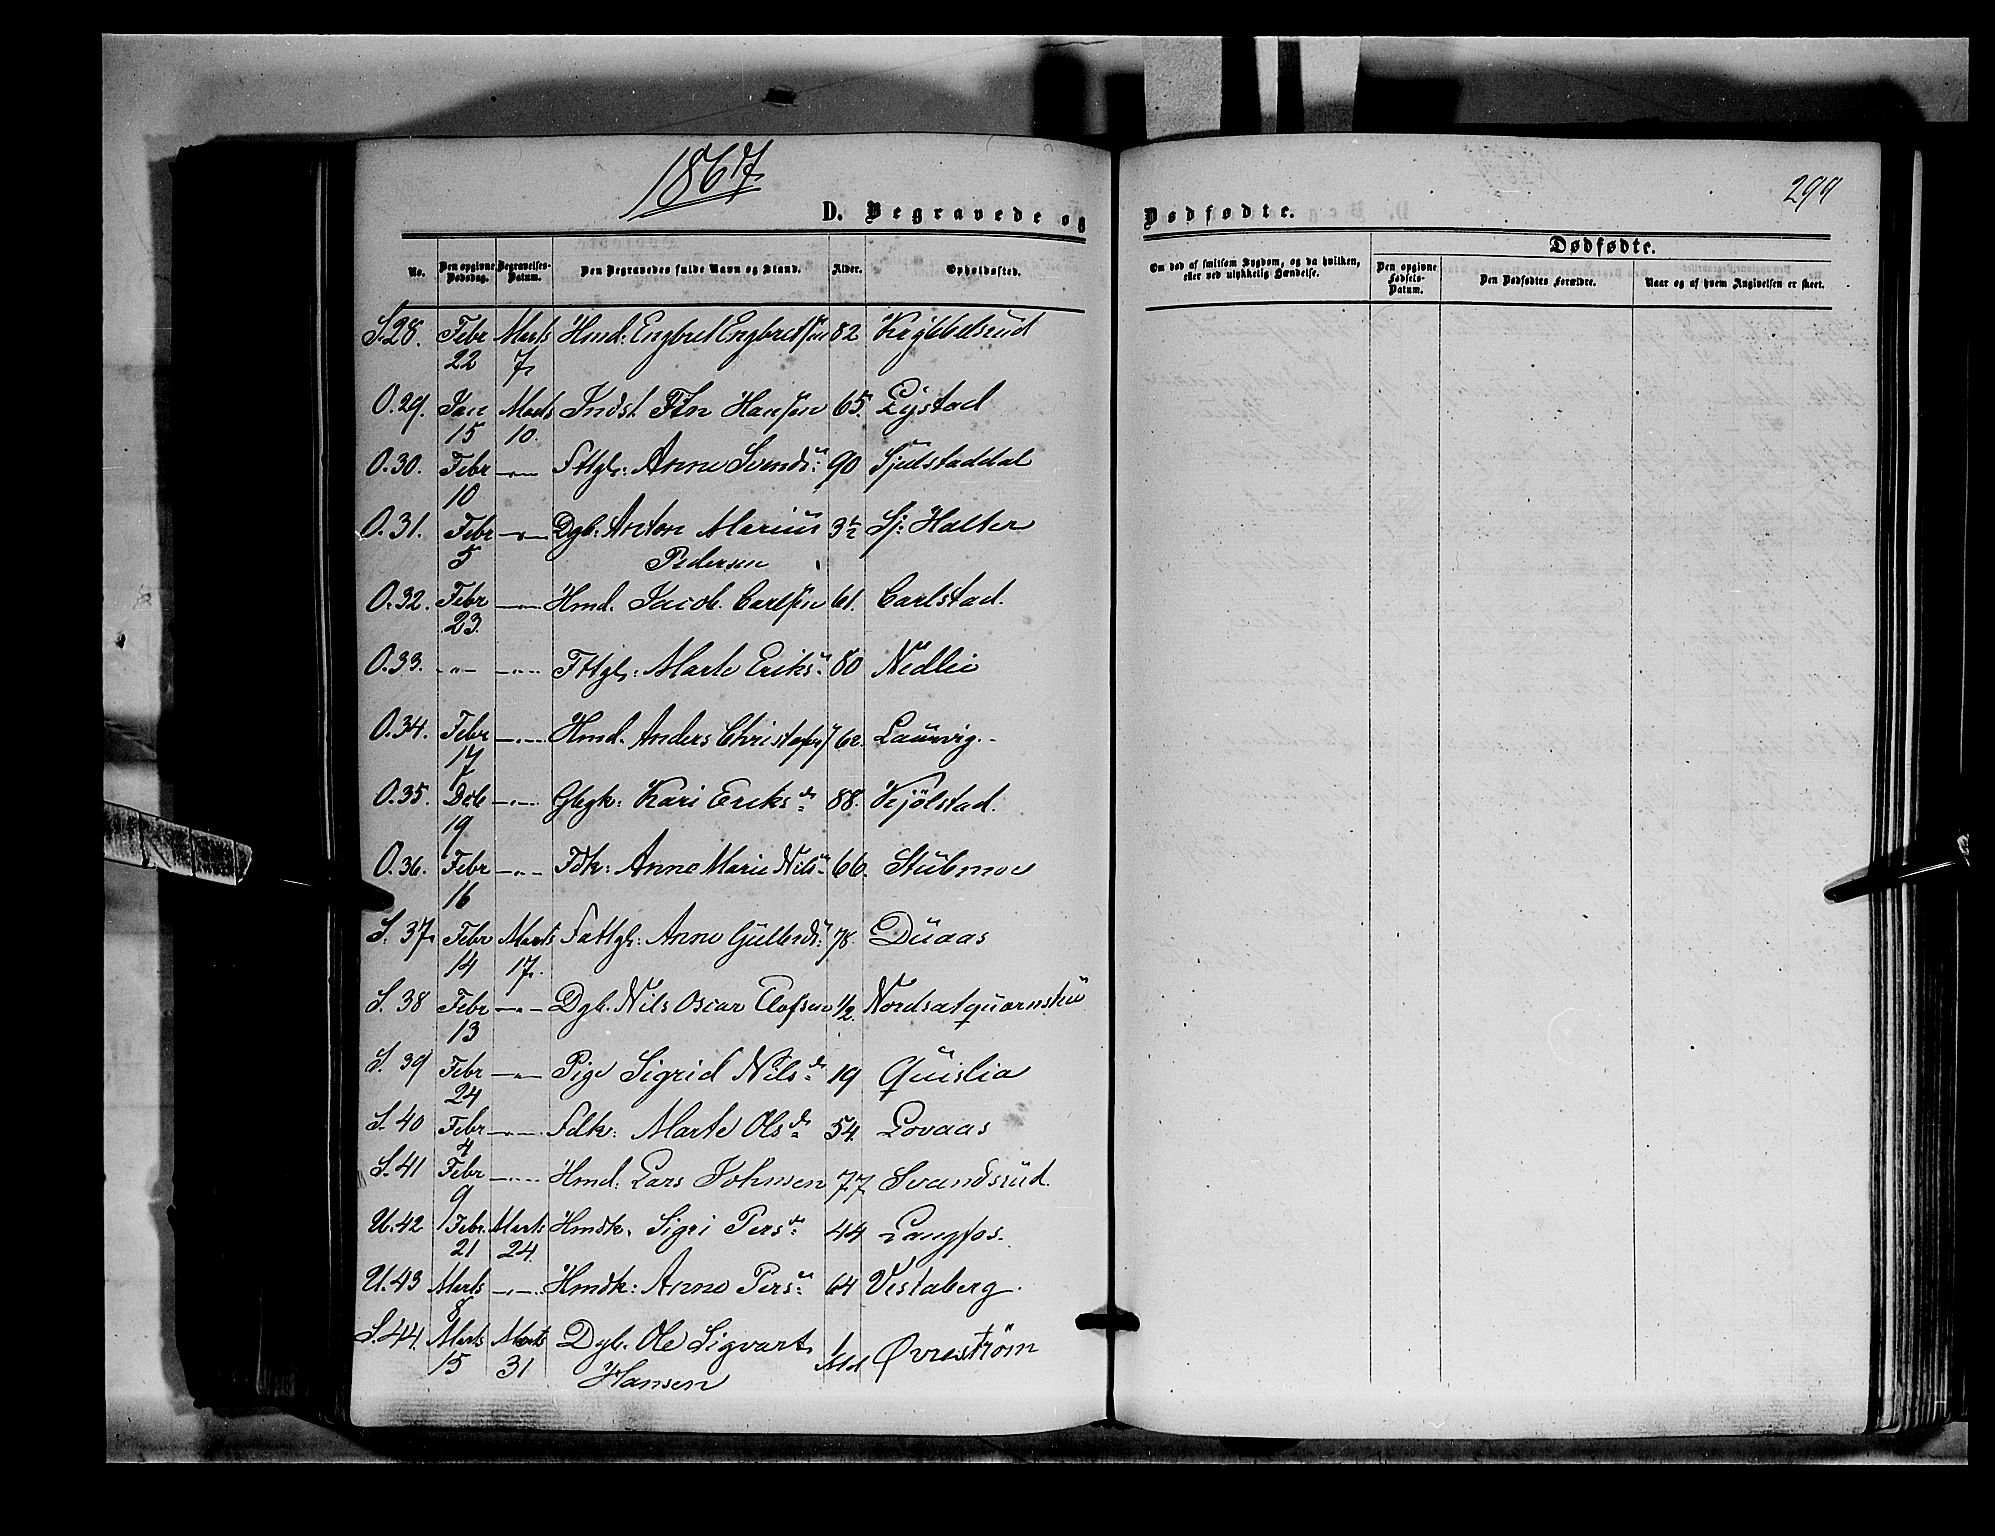 1867
299
D. Begravede og Dødfødte.
Dødfødte.
No. Den opgivne Dødsdag. Begravelses-Datum. Den Begravedes fulde Navn og Stand. Alder. Opholdssted. Om død af smitsom Sygdom, og da hvilken, eller ved ulykkelig Hændelse. Den opgivne Fødsels-Datum. Den Dødfødtes Forældre. Naar og af hvem Angivelsen er skeet.
S. 28. Febr Marts Hmd. Engbret Engbretsen 82
22 7
O. 29. Jan Marts Indst Hansen 65.
15 10.
O. 30. Febr -"- Fttgl: Anne Svendsd: 90 Sjulstaddal
10
O. 31. Febr -"- Dgb: Anton Marius 3½ Sj: Halter
5 Pedersen
O. 32. Febr -"- Hmd. Jacob Carlsen 61. Carlstad.
23.
O. 33. -"- -"- Fttgl: Marte Eriksd: 80 Nedlie
O. 34. Febr -"- Hmd. Anders Laurvig.
17
O. 35. Deb -"- Gbgk: Kari Eriksd 88. Kjölstad.
19
O. 36. Febr -"- Fdk: Anne Marie Nilsd 66. Stubmoe
16
S. 37. Febr Marts Fattgl: Anne Gulbrdsd: 78. Duaas
14 17.
S. 38 Febr -"- Dgb. Nils Oscar Olofsen ½
13
S. 39 Febr -"- Pige Sigrid Nilsd 19 Quislia
24
S. 40 Febr -"- Fdk: Marte Olsd 54. Lovaas
4
S. 41 Febr -"- Hmd: Lars Johnsen 77 Svandsrud.
9
U. 42 Febr. Marts Hmdk. Sigri Persd 44 Langfos.
21 24.
U. 43 Marts -"- Hmdk: Anne Persd 64 Vestaberg.
8
S. 44. Marts Marts Dgb. Ole Sigvart 1 Øvreström
15 31 Hansen Md